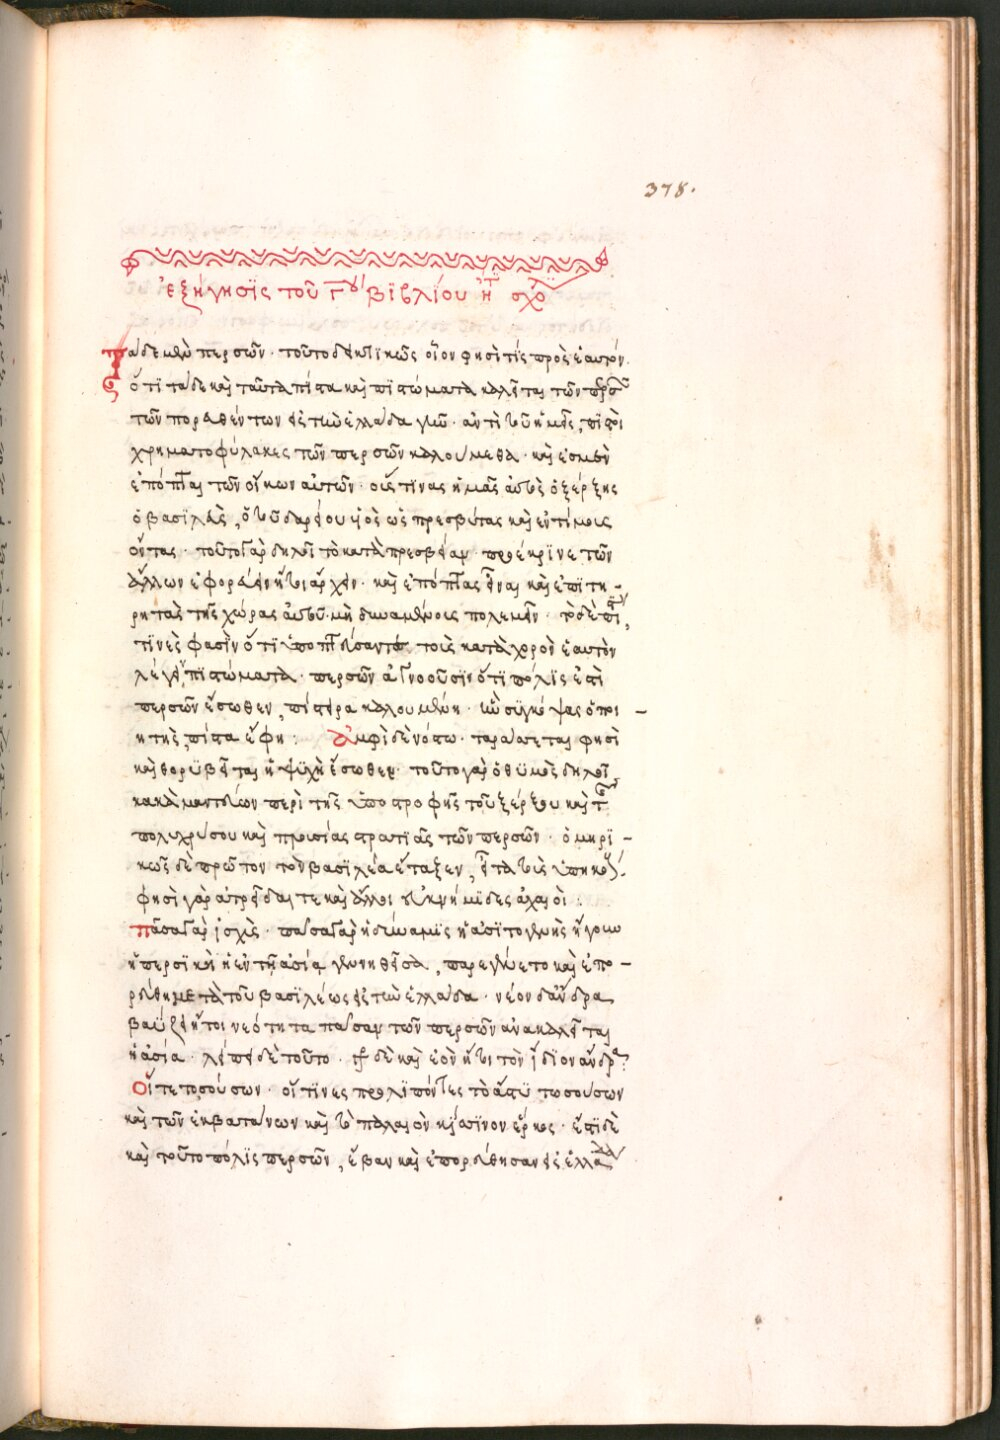 378.
ἐξήγησϊς τοῦ Γου βϊβλίου ἢ σχό
Τάδε μὲν περσῶν · τοῦτο δεικτϊκῶς οἷον φησὶ τὶς πρὸς ἑαυτόν.
ὅτϊ τάδε καὶ ταῦτα πϊστὰ καὶ πϊστώματα καλεῖται τῶν περσῶν
τῶν πορευθέντων εἰς τὴν ἑλλάδα γῆν · ἀντὶ τοῦ ἡμεῖς, πϊστοὶ
χρηματοφύλακες τῶν περσῶν καλούμεθα · καὶ ἐσμὲν
ἐπόπται τῶν οἴκων αὐτῶν · οὕς τϊνας ἡμᾶς αὐτὸς ὁ ξέρξης
ὁ βασϊλεὺς, ὁ τοῦ δαρείου υἱὸς ὡς πρεσβύτας καὶ ἐντίμους
ὄντας · τοῦτο γὰρ δηλοῖ τὸ κατὰ πρεσβείαν · προέκρϊνε τῶν
ἄλλων ἐφορεύειν ἤτοι ἄρχειν · καὶ ἐπόπτας εἶναι καὶ ἐπϊτη-
ρητὰς τῆς χώρας αὐτοῦ · μὴ δυναμένους πολεμεῖν · τὸ δὲ πϊστὰ,
τϊνὲς φασὶν ὅτϊ ὑποπτεύσαντες τοὺς κατὰ χορὸν ἑαυτὸν
λέγει πϊστώματα · περσῶν ἀγνοοῦσϊν ὅτϊ πόλϊς ἐστὶ
περσῶν ἔσωθεν, πίστειρα καλουμένη · ἣν συγκόψας ὁ ποι-
ητὴς, πίστα ἔφη : Ἀμφὶ δὲ νόστω · ταράσσεται φησὶ
καὶ θορυβεῖται ἡ ψϋχὴ ἔσωθεν · τοῦτο γὰρ ὁ θϋμὸς δηλοῖ,
κακὰ μαντεύων περὶ τῆς ὑποστροφῆς τοῦ ξέρξου καὶ τῆς
πολυχρύσου καὶ πλουσίας στρατϊᾶς τῶν περσῶν · ὁμηρϊ-
κῶς δὲ πρῶτον τὸν βασϊλέα ἔταξεν, εἶτα τοὺς ὑπηκόους.
φησὶ γὰρ ἀτρεῖδαι τε καὶ ἄλλοι εὐκνήμϊδες ἀχαιοὶ :
πᾶσα γὰρ ἰσχὺς · πᾶσα γὰρ ἡ δύναμϊς ἡ ἀσϊτογενὴς ἤγουν
ἡ περσϊκὴ ἡ ἐν τῆ ἀσίᾳ γεννηθεῖσα, παρεγένετο καὶ ἐπο-
ρεύθη μετὰ τοῦ βασϊλέως εἰς τὴν ἑλλάδα · νέον δ' ἄνδρα
βαΰζει ἤτοι νεότητα πᾶσαν τῶν περσῶν ἀνακαλεῖται
ἡ ἀσία · λείπει δὲ τοῦτο · γρ δὲ καὶ ἑὸν ἤτοι τὸν ἴδϊον ἄνδρα
Οἵ τε τὸ σούσων · οἵ τϊνες προλϊπόντες τὸ ἄστϋ τὸ σούσων
καὶ τῶν ἐκβατάνων καὶ τὸ παλαιὸν κίσσϊνον ἕρκος · ἔστϊ δὲ
καὶ τοῦτο πόλϊς περσῶν, ἔβαν καὶ ἐπορεύθησαν εἰς ἑλλάδα